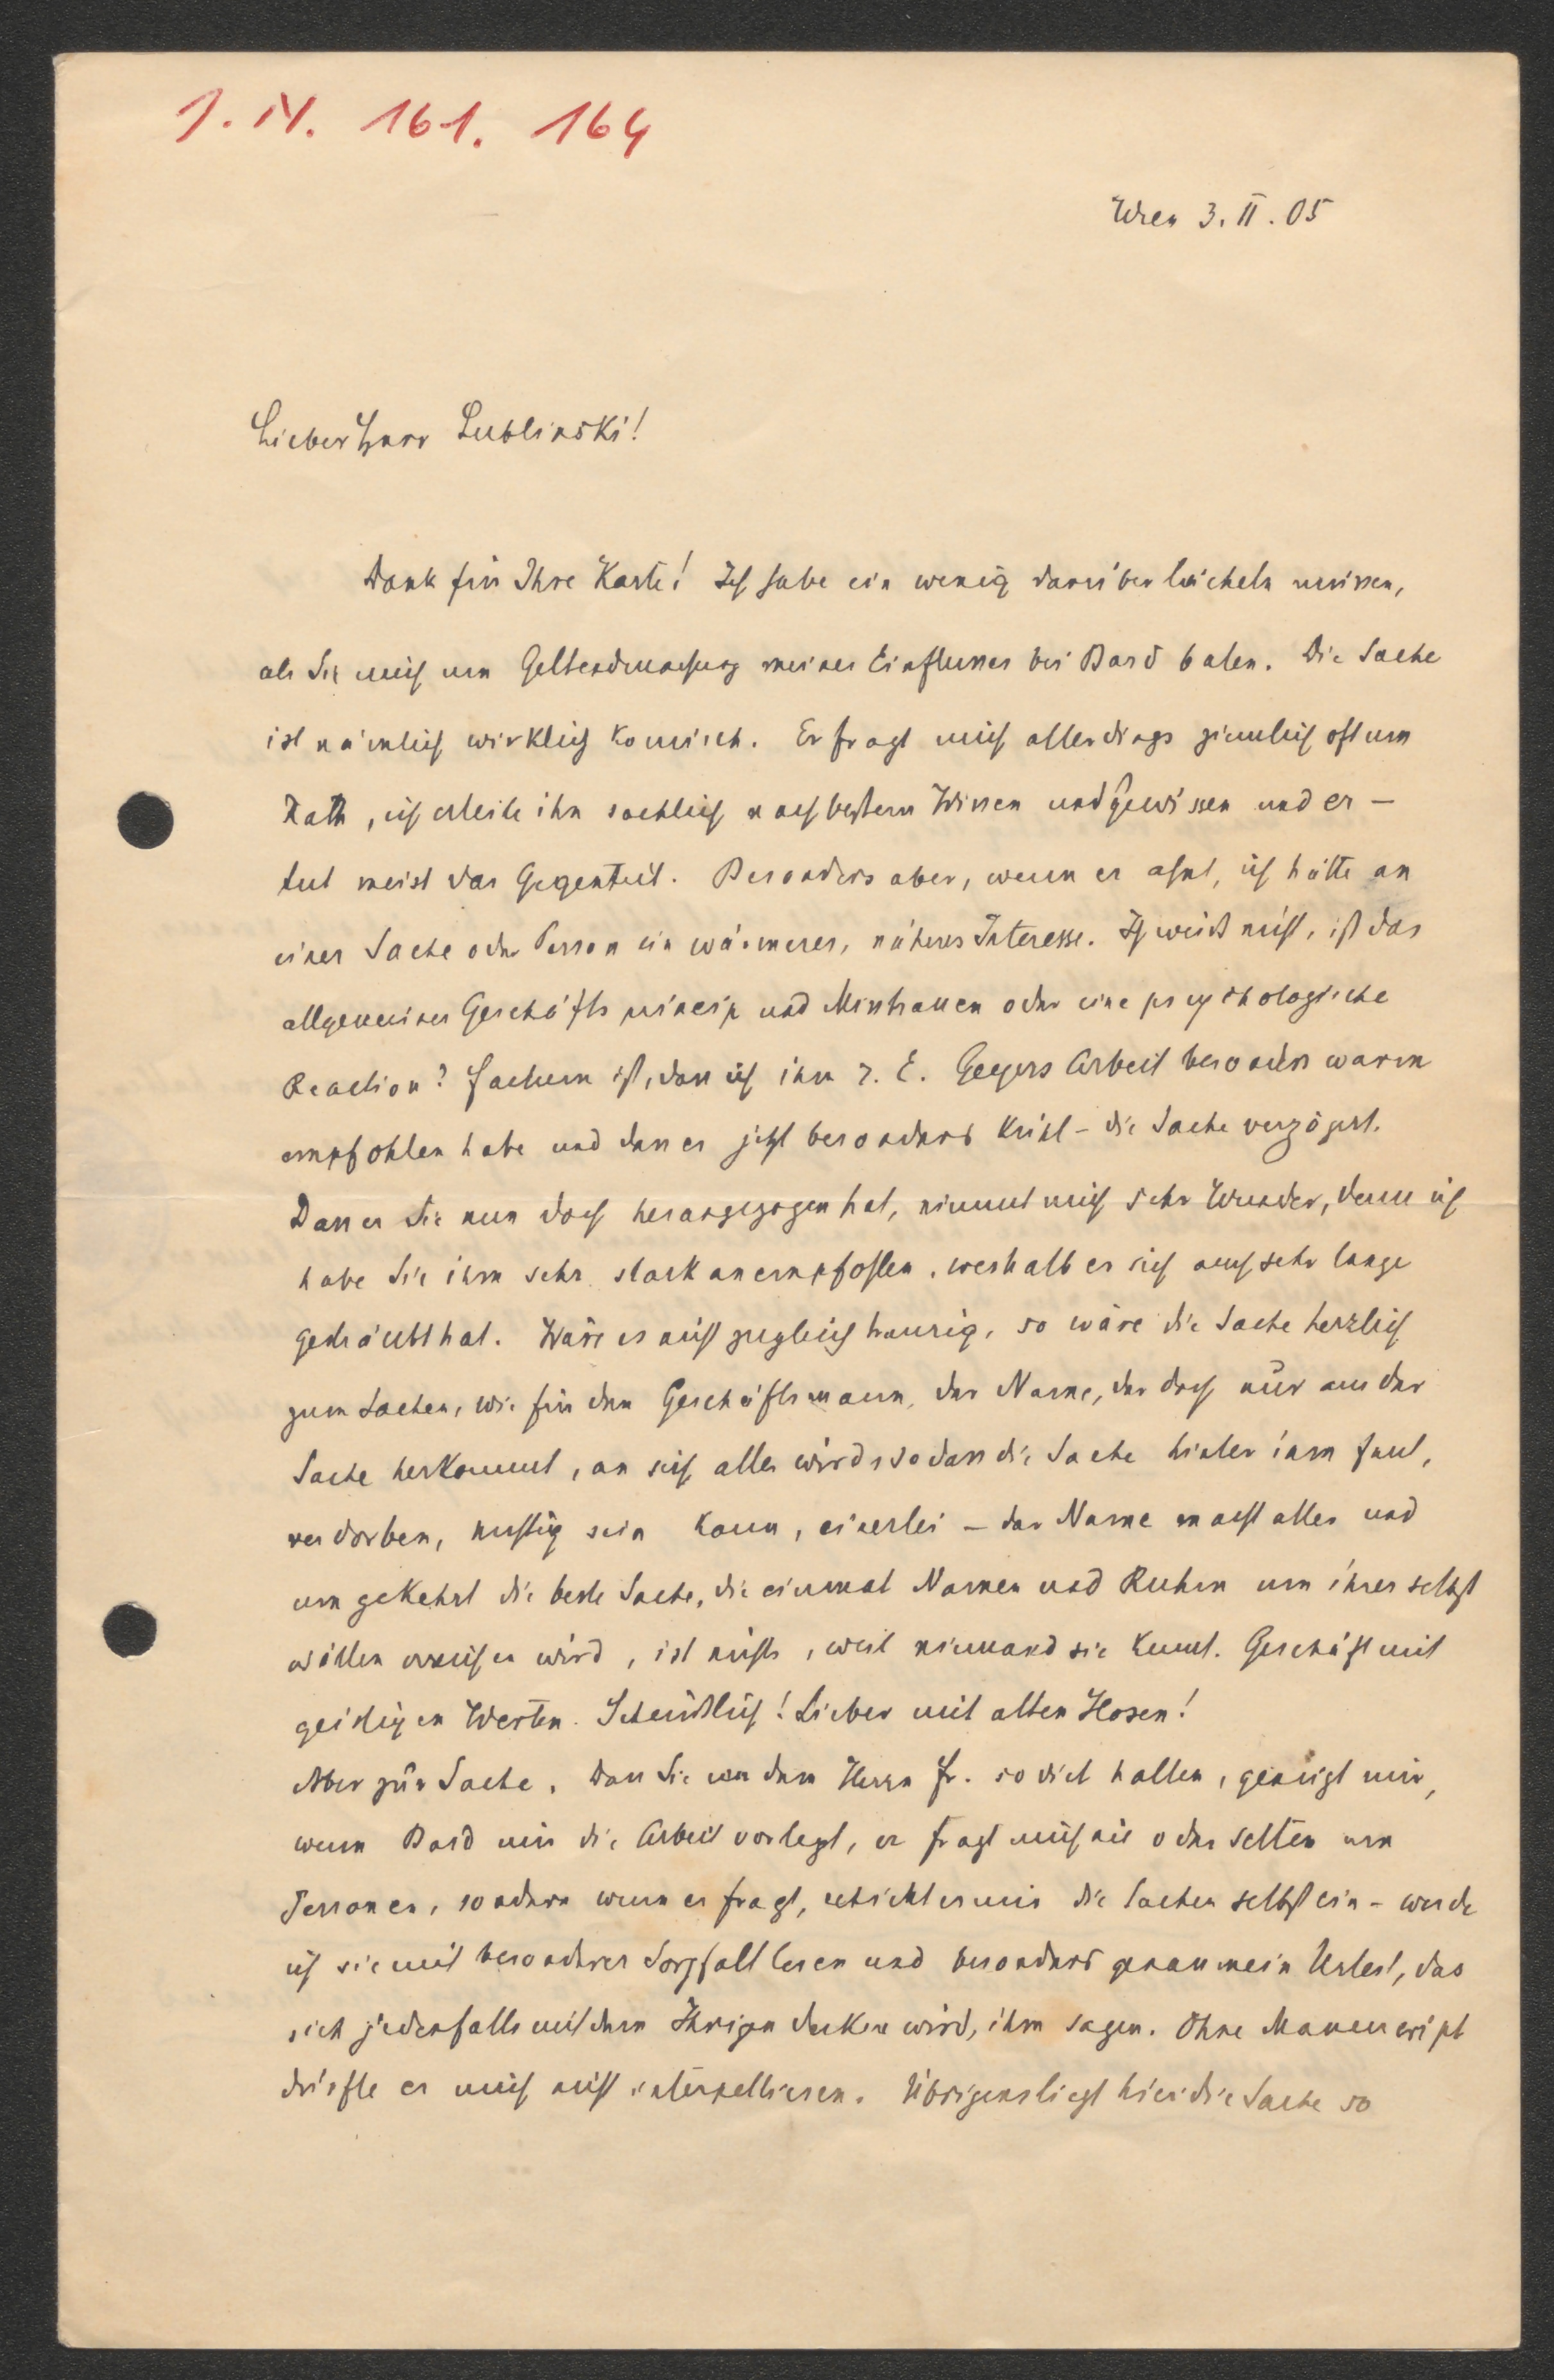 J. N. 161. 164
Wien 3. II. 05
Lieber Herr Lublinski!
Dank für Ihre Karte! Ich habe ein wenig darüber lächeln müssen,
als Sie mich um Geltendmachung meines Einflusses bei Bard baten. Die Sache
ist nämlich wirklich komisch. Er fragt mich allerdings ziemlich oft um
Rath, ich erteile ihn sachlich nach bestem Wissen und Gewissen und er –
tut meist das Gegenteil. Besonders aber, wenn er ahnt, ich hätte an
einer Sache oder Person ein wärmeres, näheres Interesse. Ich weiß nicht, ist das
allgemeines Geschäftsprincip und Misstrauen oder eine psychologische
Reaction? Factum ist, dass ich ihm z. E. Geyers Arbeit besonders warm
empfohlen habe und dass er jetzt besonders – die Sache verzögert.
Dass er Sie nun doch herangezogen hat, nimmt mich sehr Wunder, denn ich
habe Sie ihm sehr stark anempfohlen, weshalb er sich auch sehr lange
gesträubt hat. Wäre es nicht zugleich traurig, so wäre die Sache herzlich
zum Lachen, wie für den Geschäftsmann, der Name, der doch nur aus der
Sache herkommt, an sich alles wird, sodass die Sache hinter ihm faul,
verdorben, nichtig sein kann, einerlei – der Name macht alles und
umgekehrt die beste Sache, die einmal Namen und Ruhm um ihrer selbst
willen erreichen wird, ist nichts, weil niemand sie kennt. Geschäft mit
geistigen Werten. Scheußlich! Lieber mit alten Hosen!
Aber zur Sache. Dass Sie von dem Herrn Fr. so viel halten, genügt mir,
wenn Bard mir die Arbeit vorlegt, er fragt mich nie oder selten um
Personen, sondern wenn er fragt, schickt er mir die Sachen selbst ein – werde
ich sie mit besonderer Sorgfalt lesen und besonders genau mein Urteil, das
sich jedenfalls mit dem Ihrigen decken wird, ihm sagen. Ohne Manuscript
dürfte er mich nicht interpellieren. Übrigens liegt hier die Sache so